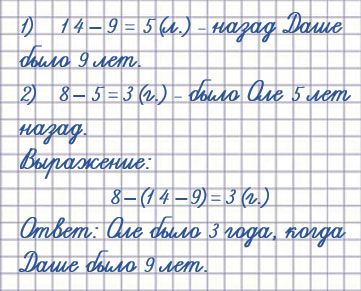 1) 14 – 9 = 5 (л.) – назад Даше
было 9 лет.
2) 8 – 5 = 3 (г.) – было Оле 5 лет
назад.
Выражение:
8 – (14 – 9) = 3 (г.)
Ответ: Оле было 3 года, когда
Даше было 9 лет.